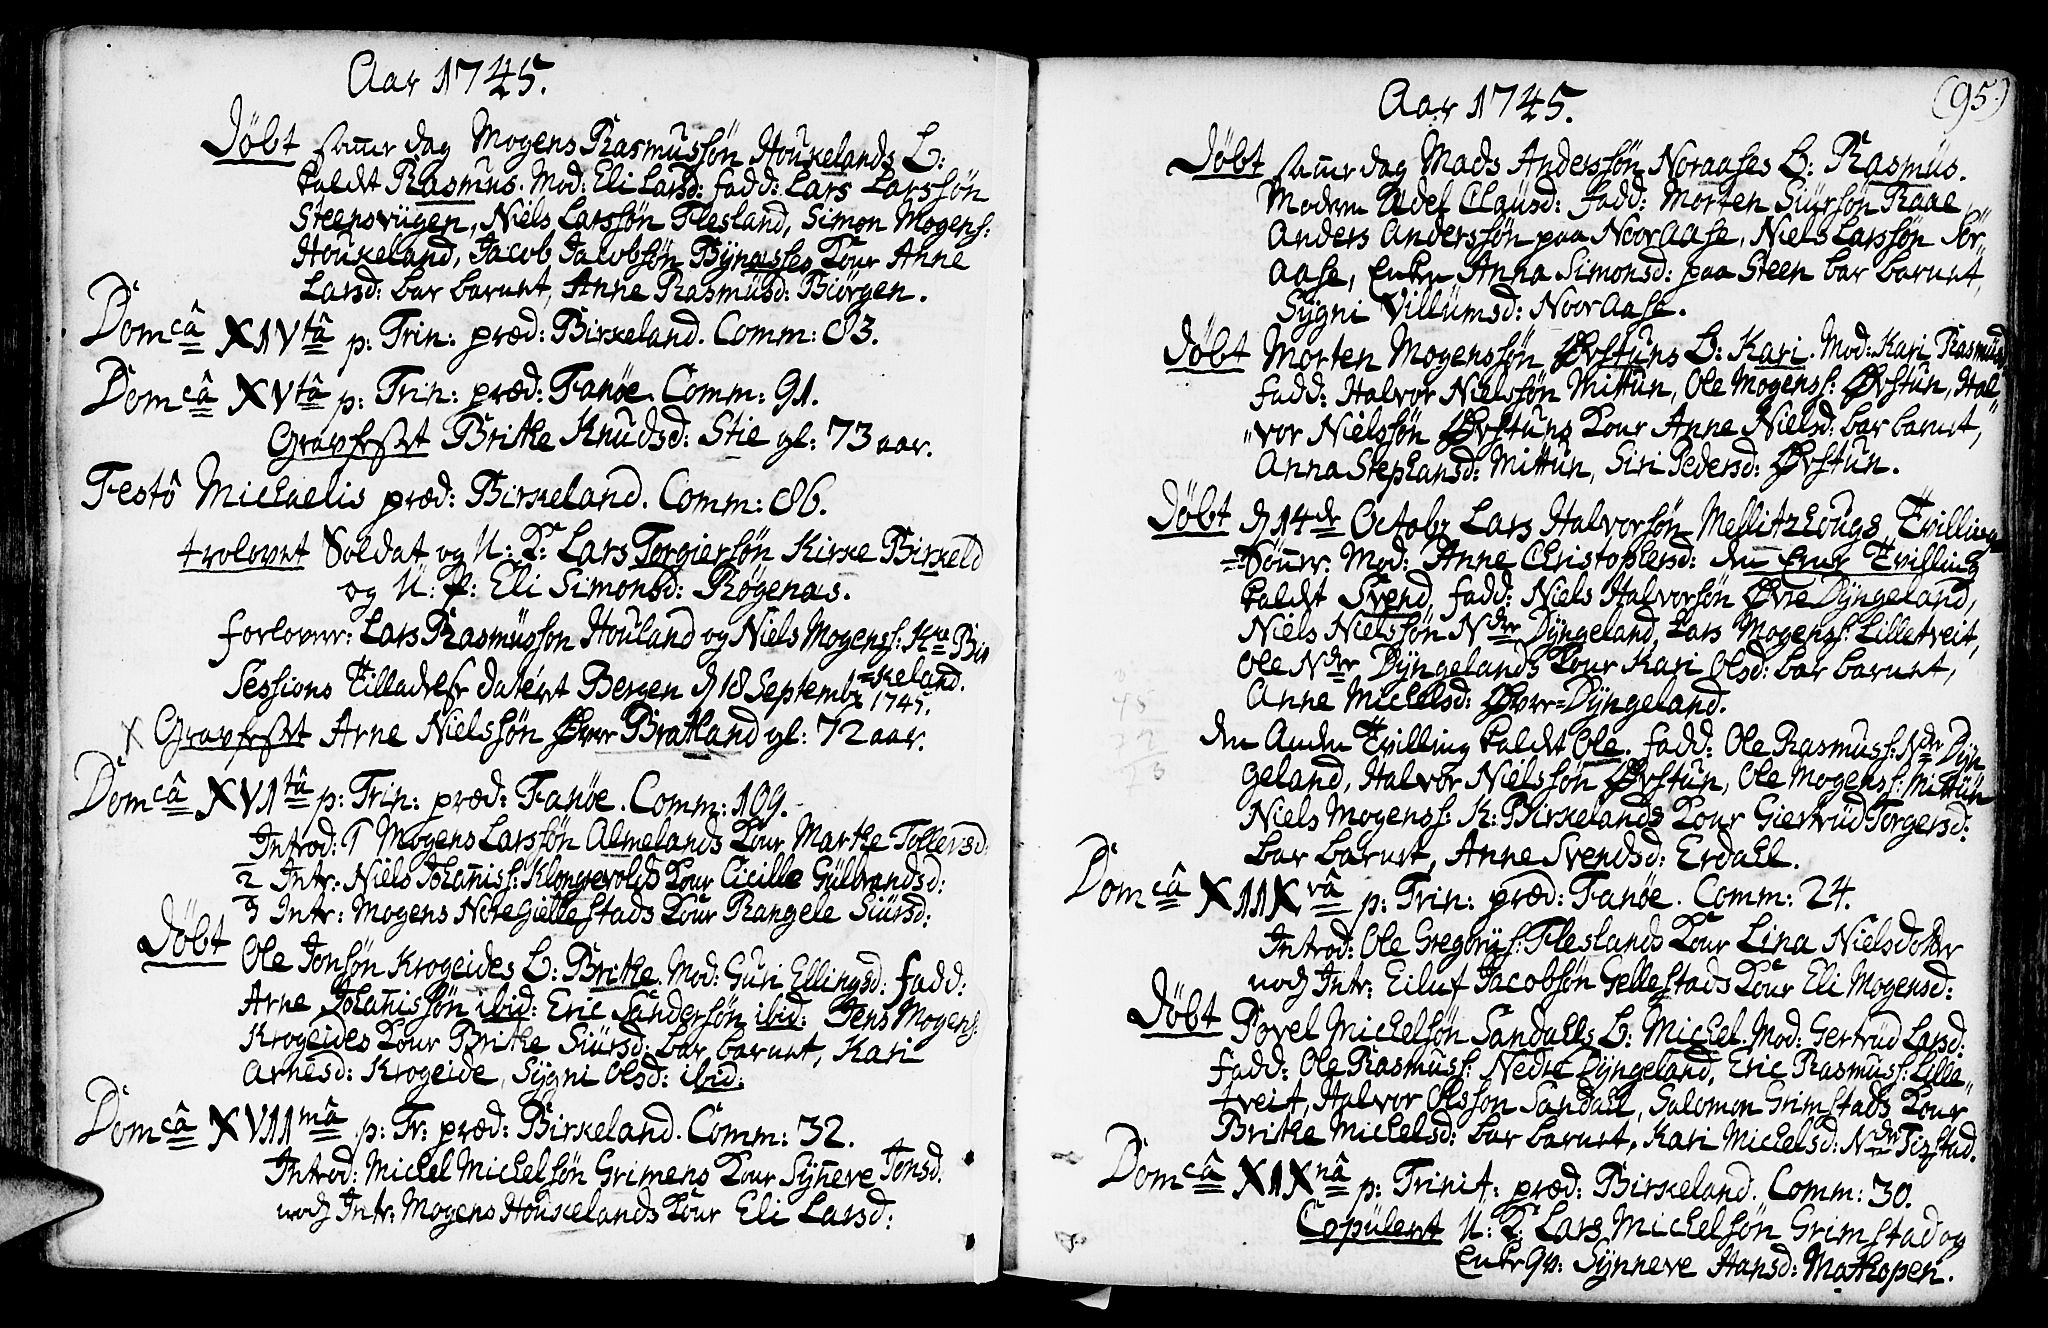 Aar 1745.
Døbt samme dag Mogens Rasmussøn Houkelands B:
kaldt Rasmus. Mod: Eli Larsd: fadd: Lars Larssøn
Steensviigen, Niels Larssøn Flesland, Simon Mogens:
Houkeland, Jacob Jacobsøn Bÿnæsses Kone Anne
Larsd: bar barnet, Anne Rasmusd: Biørgen.
Domcâ XIVtâ p: Trin: præd: Birkeland. Comm: 83.
Domcâ XVtâ p: Trin: præd: Fanöe. Comm: 91.
Gravfest Brithe Knudsd: Stie gl: 73 aar.
Festô Michaelis præd: Birkeland. Comm: 86.
trolovet Soldat og U: K: Lars Torgiersøn Kirke Birkeld
og U: P: Eli Simonsd: Røgenæs.
forlover: Lars Rasmusson Houland og Niels Mogens: Kke Bir
=keland.
Sessions Tilladelse datert Bergen d 18 Septembr 1745.
X Gravfest Arne Nielssøn Øvre Bratland gl: 72 aar.
Domcâ XVItâ p: Trin: præd: Fanöe. Comm: 109.
Introd: 1 Mogens Larssøn Almelands Kone Marthe Tollevsd:
2 Intr: Niels Johanis: Klongevolds Kone Cicille Gulbrandsd:
3 Intr: Mogens Nore Giellestads Kone Rangele Siursd:
Døbt Ole Jonsøn Krogeides B: Brithe. Mod: Guri Ellingsd: fadd:
Arne Johanissøn ibid: Eric Sandersøn ibid: Jens Mogens:
Krogeides Kone Brithe Siursd: bar barnet, Kari
Arnesd: Krogeide, Sÿgni Olsd: ibid:
Domcâ XVIImâ p: Tr: præd: Birkeland. Comm: 32.
Introd: Michel Michelsøn Grimens Kone Sÿneve Jonsd.
nock Intr: Mogens Houkelands Kone Eli Larsd:
(95.)
Aar 1745.
Døbt samme dag Mads Anderssøn Noraases B: Rasmus.
Moderen Adel Clausd: fadd: Morten Siursøn Raae
Anders Anderssøn paa Nooraase, Niels Larssøn Sør
aase, Enken Anna Simonsd: paa Steen bar barnet,
Sÿgni Villumsd: Nooraase.
Døbt Morten Mogenssøn Øvstuns B: Kari. Mod: Kari Rasmusd
fadd: Halvor Nielssøn Mittun, Ole Mogens: Øvstun, Hal
vor Nielssøn Øvstuns Kone Anne Nielsd: bar barnet,
Anna Stephansd: Mittun, Siri Pedersd: Øvstun.
Døbt d 14de Octobr Lars Halvorsøn Meslitzhougs Tvillinge
=Sönner. Mod: Anne Christophersd: den Eene Tvilling
kaldt Svend, fadd: Niels Halvorsøn Øvre Dÿngeland,
Niels Nielssøn Ndre Dÿngeland, Lars Mogens: Lilletveit,
Ole Ndre Dÿngelands Kone Kari Olsd: bar barnet,
Anne Michelsd: Øvre=Dÿngeland.
den Anden Tvilling kaldt Ole. fadd: Ole Rasmus: Ndre Dÿn
geland, Halvor Nielssøn Øvstun, Ole Mogens: Mittun
Niels Mogens: K: Birkelands Kone Giertrud Torgersd:
bar barnet, Anne Svendsd: Erdahl.
Domcâ XIIXvâ p: Trin: præd: Fanöe. Comm: 24.
Introd: Ole Gregorÿs: Fleslands Kone Lina Nielsdotter
nock Intr: Eiluf Jacobsøn Gellestads Kone Eli Mogensd:
Døbt Povel Michelsøn Sandahls B: Michel. Mod: Gertrud Larsd:
fadd: Ole Rasmus: Nedre Dÿngeland, Eric Rasmus: Lille
tveit, Halvor Olsson Sandahl, Salomon Grimstads Kone
Brithe Michelsd: bar barnet, Kari Michelsd: Ndre Titzstad.
Domcâ XIXnâ p: Trinit: præd: Birkeland. Comm: 30.
Copulert U: K: Lars Michelsøn Grimstad og
Enke Qv: Sÿnneve Hansd: Mathopen.